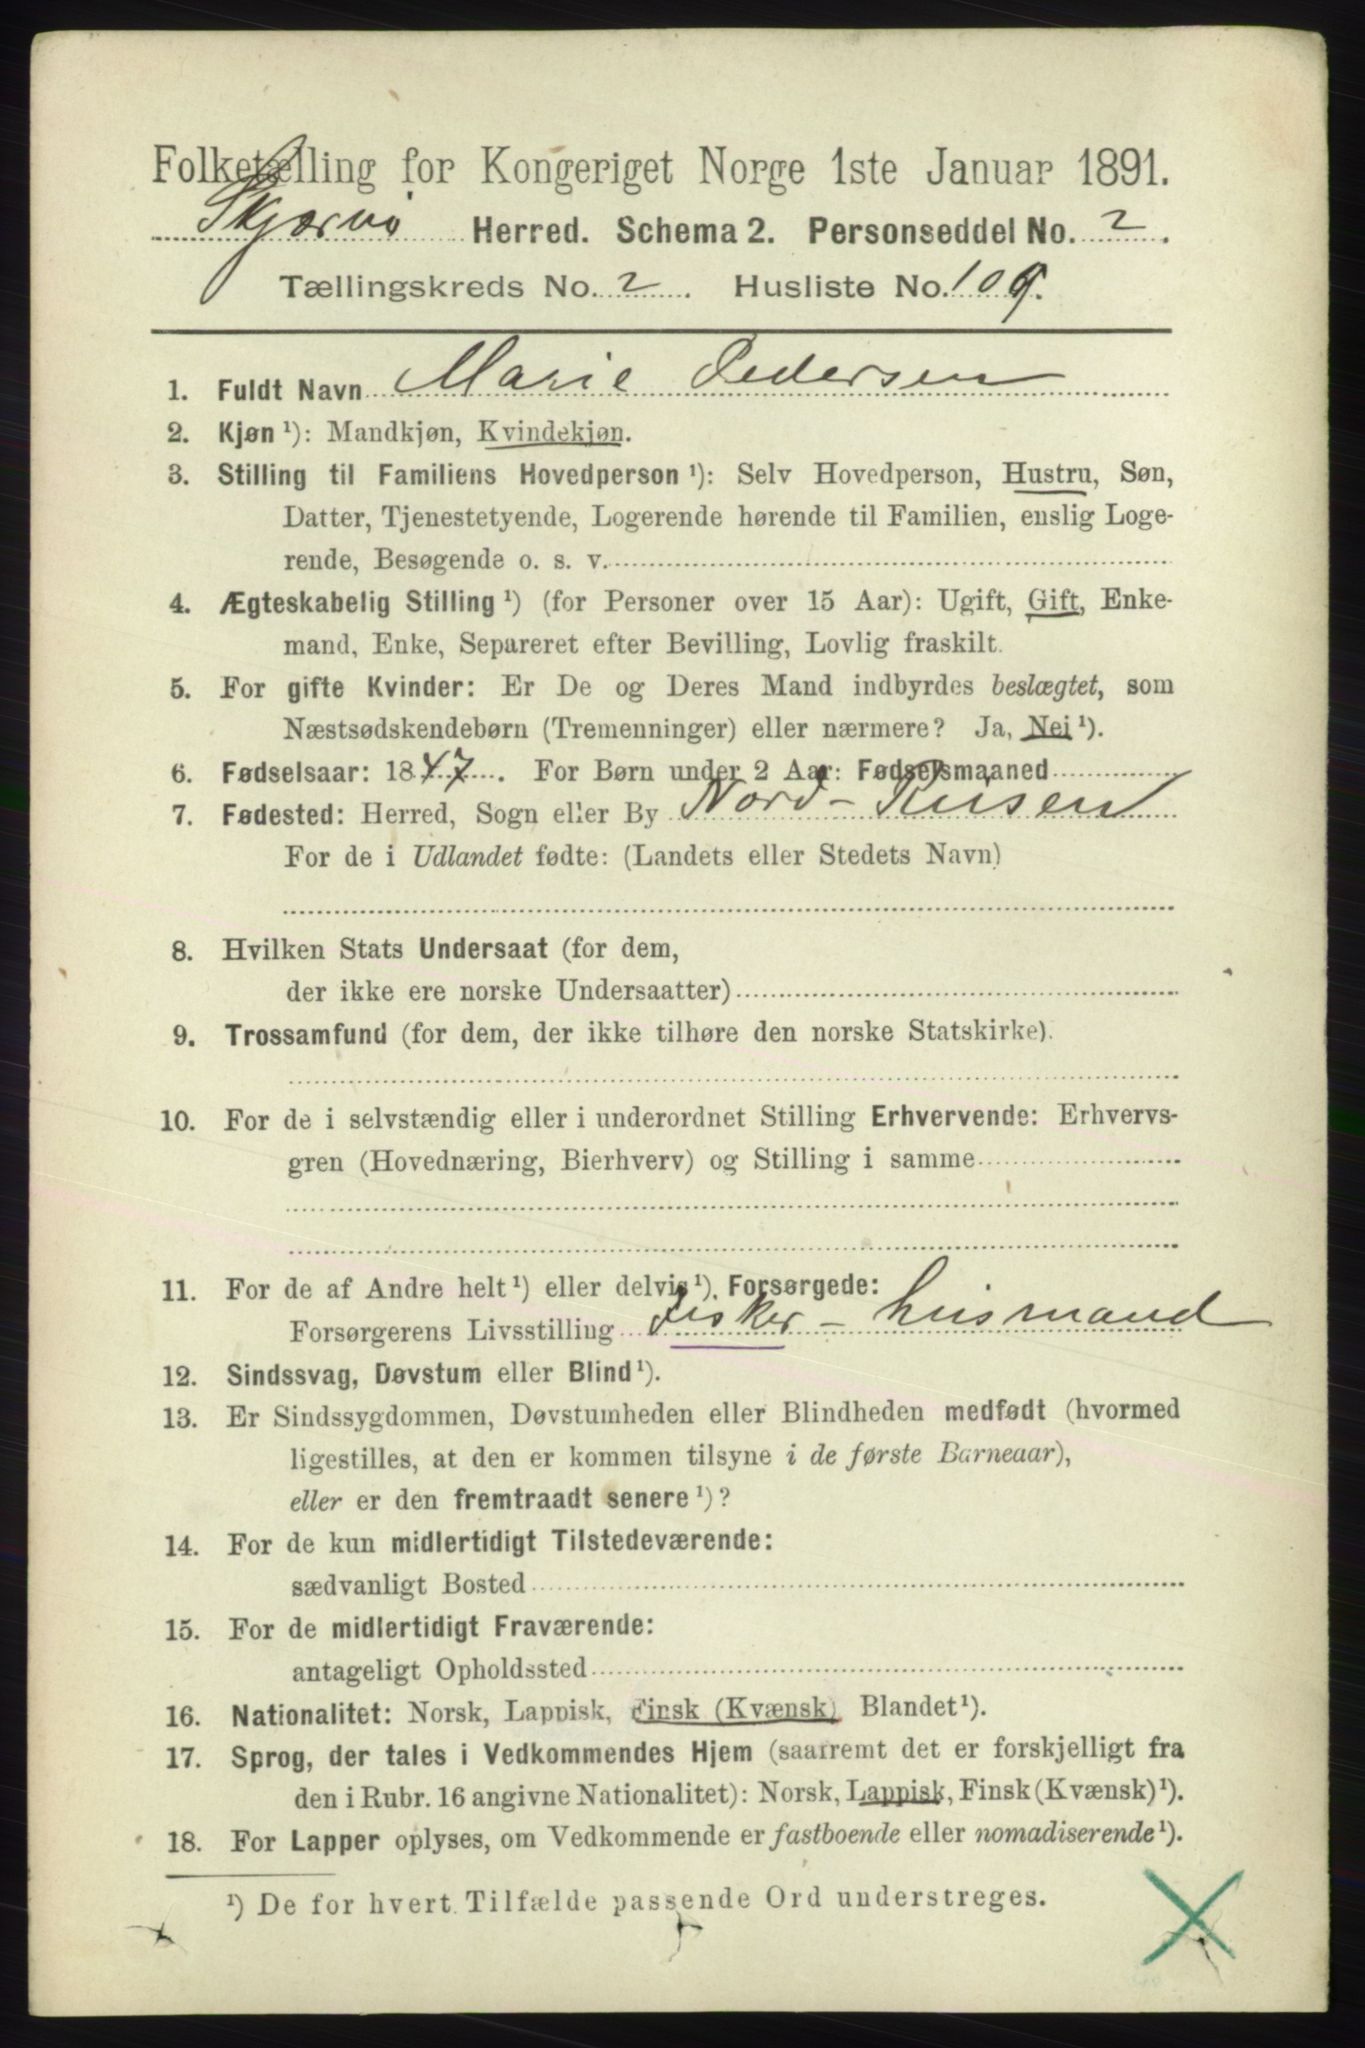 Folketælling for Kongeriget Norge 1ste Januar 1891.
Skjærvø Herred. Schema 2. Personseddel No. 2.
Tællingskreds No. 2. Husliste No. 109.
1. Fuldt Navn Marie Pedersen
2. Kjøn ¹): Mandkjøn, Kvindekjøn.
3. Stilling til Familiens Hovedperson ¹): Selv Hovedperson, Hustru, Søn,
Datter, Tjenestetyende, Logerende hørende til Familien, enslig Loge-
rende, Besøgende o. s. v.
4. Ægteskabelig Stilling ¹) (for Personer over 15 Aar): Ugift, Gift, Enke-
mand, Enke, Separeret efter Bevilling, Lovlig fraskilt.
5. For gifte Kvinder: Er De og Deres Mand indbyrdes beslægtet, som
Næstsødskendebørn (Tremenninger) eller nærmere? Ja, Nei ¹).
6. Fødselsaar: 1847. For Børn under 2 Aar: Fødselsmaaned
7. Fødested: Herred, Sogn eller By Nord-Reisen
For de i Udlandet fødte: (Landets eller Stedets Navn)
8. Hvilken Stats Undersaat (for dem,
der ikke ere norske Undersaatter)
9. Trossamfund (for dem, der ikke tilhøre den norske Statskirke).
10. For de i selvstændig eller i underordnet Stilling Erhvervende: Erhvervs-
gren (Hovednæring, Bierhverv) og Stilling i samme
11. For de af Andre helt ¹) eller delvis ¹). Forsørgede:
Forsørgerens Livsstilling Fisker - husmand
12. Sindssvag, Døvstum eller Blind ¹).
13. Er Sindssygdommen, Døvstumheden eller Blindheden medfødt (hvormed
ligestilles, at den er kommen tilsyne i de første Barneaar),
eller er den fremtraadt senere ¹)?
14. For de kun midlertidigt Tilstedeværende:
sædvanligt Bosted
15. For de midlertidigt Fraværende:
antageligt Opholdssted
16. Nationalitet: Norsk, Lappisk, Finsk (Kvænsk) Blandet ¹).
17. Sprog, der tales i Vedkommendes Hjem (saafremt det er forskjelligt fra
den i Rubr. 16 angivne Nationalitet): Norsk, Lappisk, Finsk (Kvænsk) ¹).
18. For Lapper oplyses, om Vedkommende er fastboende eller nomadiserende ¹).
¹) De for hvert Tilfælde passende Ord understreges.